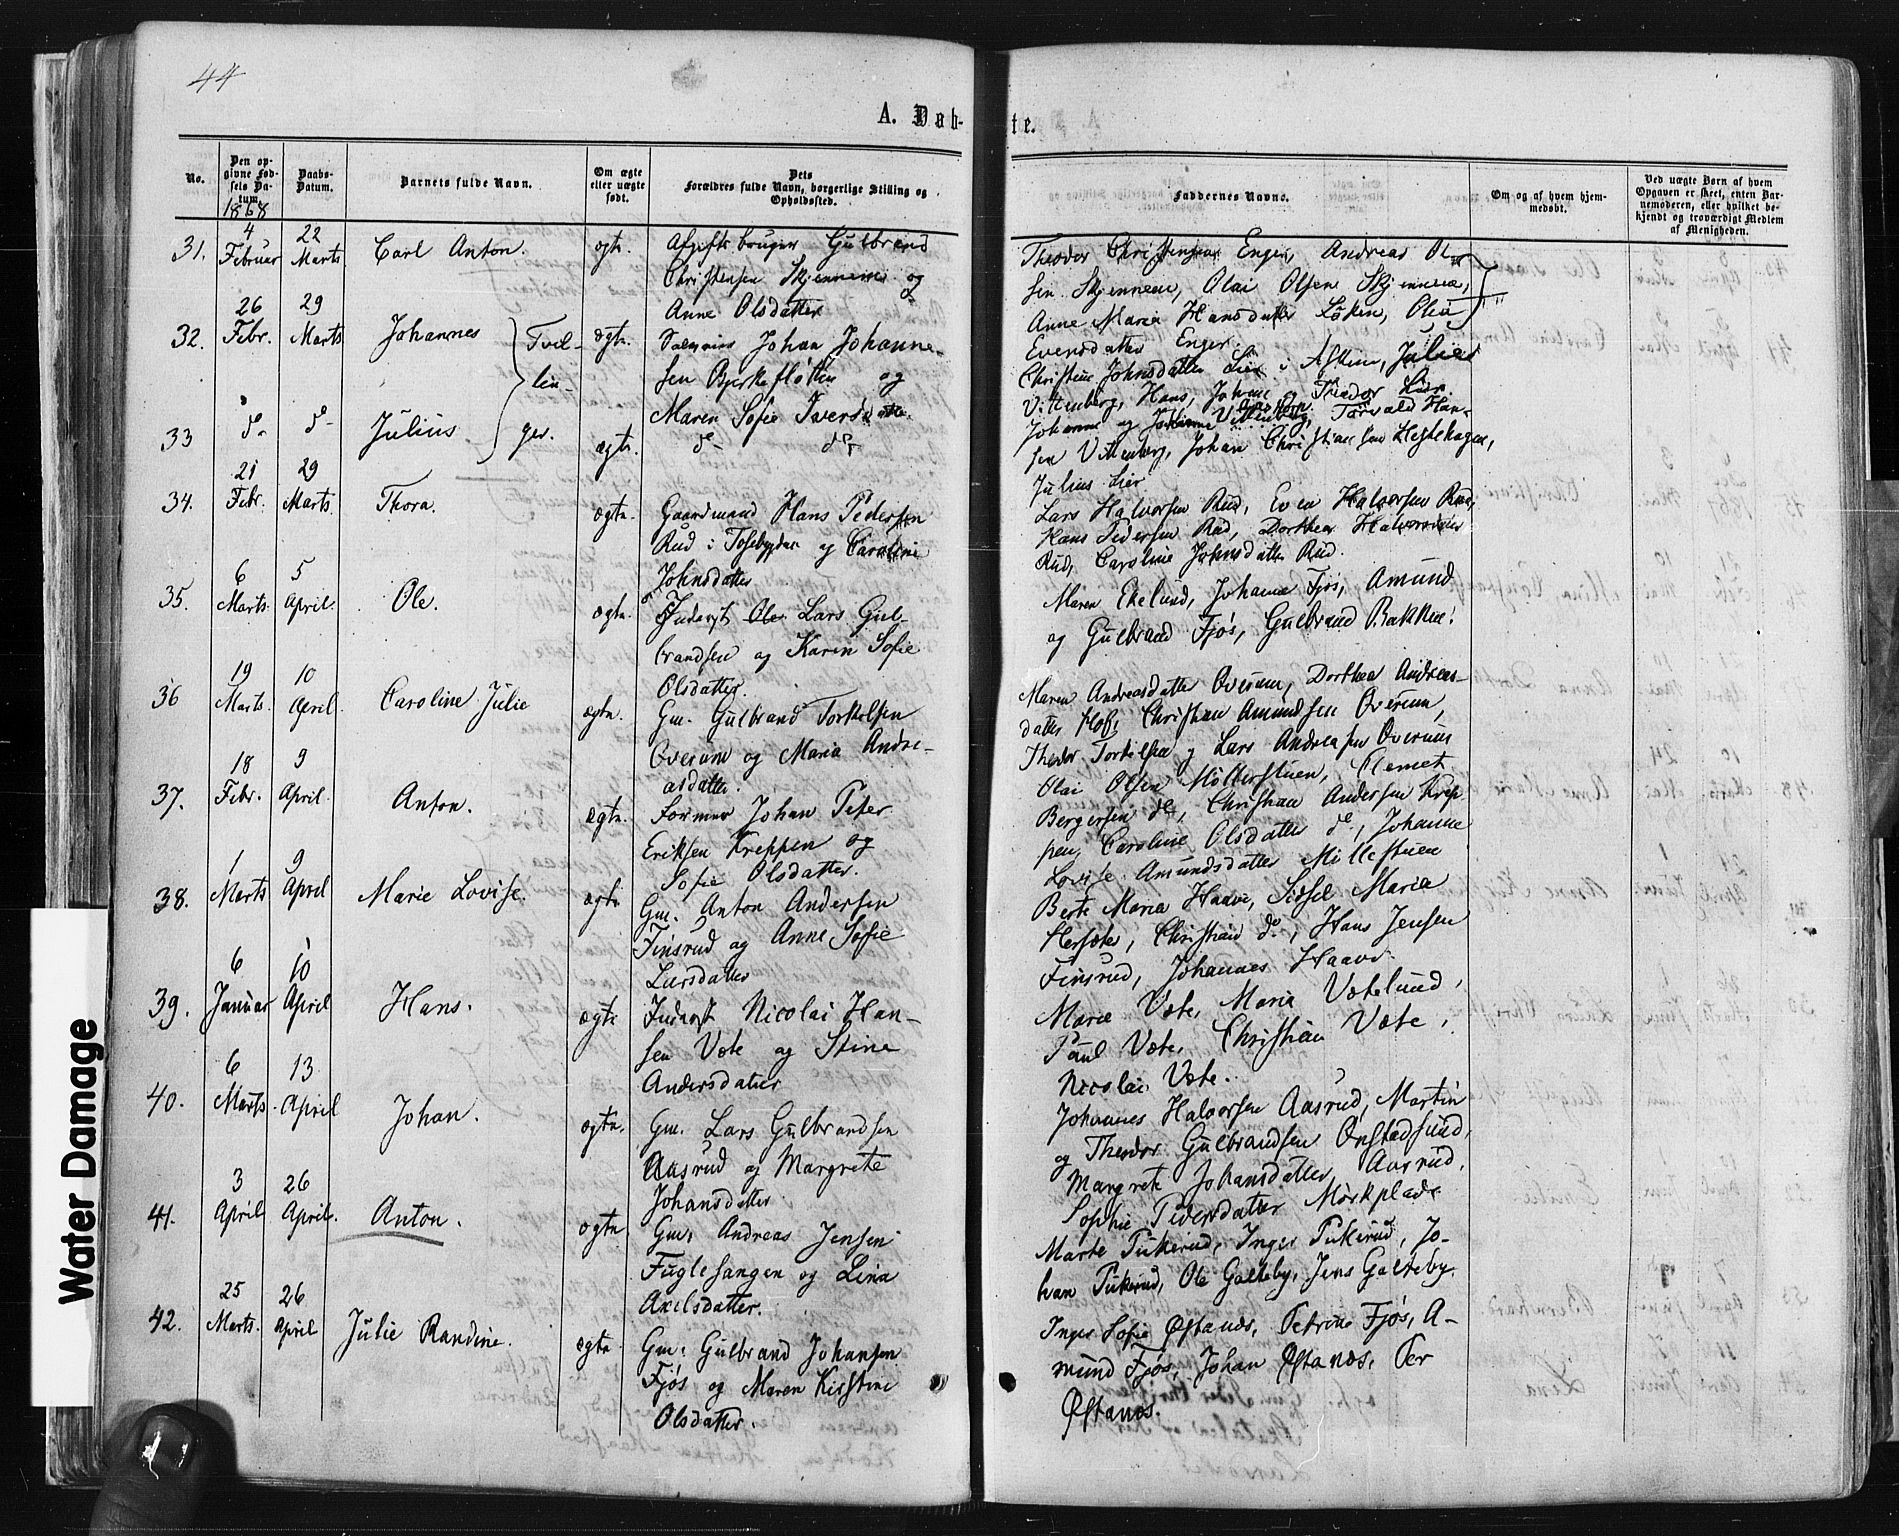 44
A. Døbte.
No.
Den opgivne Fødsels Datum.
Daabs-Datum.
Barnets fulde Navn.
Om ægte eller uægte født.
Dets Forældres fulde Navn, borgerlige Stilling og Opholdssted.
Faddernes Navne.
Om og af hvem hjemmedøbt.
Ved uægte Børn af hvem Opgaven er skeet, enten Barnemoderen, eller hvilket bekjendt og troværdigt Medlem af Menigheden.
1868
31. 4 Februar 22 Marts Carl Anton. ægte. Afgiftsbruger Gulbrand
Christensen Skjennem og
Anne Olsdatter
Theodor Christensen Enger, Andreas Ol-
sen Skjennem, Olai Olsen Skjennem,
Anne Maria Hansdatter Løken, Olea
Evensdatter Enger.
32. 26 Febr. 29 Marts Johannes } Tvil- ægte. Johan Johanne-
sen Bjerkefløtten og
Maren Sofie Iversdatter.
Christine Johnsdatter Lier i Askim, Julius
Vittenberg, Hans, Johan Theodor Lier
33 do do Julius. lin- ger. ægte. do do
Johanne og Vittenberg, Torvald Han-
sen Vittenberg, Johan Christiansen Hestehagen,
Julius Lier
34. 21 Febr. 29 Marts Thora. ægte. Gaardmand Hans Pedersen
Rud i Tosebygden og Caroline
Johnsdatter
Lars Halvorsen Rud, Even Halvorsen Rud,
Hans Pedersen Rud, Dorthea Halvorsdatter
Rud, Caroline Johnsdatter Rud.
35. 6 Marts. 5 April. Ole. ægte. Inderst Ole Lars Gul-
brandsen og Karen Sofie
Olsdatter.
Maren Ekelund, Johanne Fjøs, Amund
og Gulbrand Fjøs, Gulbrand Bakken.
36 19 Marts. 10 April. Caroline Julie ægte. Gm. Gulbrand Torkelsen
Overum og Maria Andre-
asdatter.
Maren Andreasdatter Overum, Dorthea Andreas-
datter Hof, Christian Amundsen Overum,
Theodor Torkelsen og Lars Andreasen Overum
37. 18 Febr. 9 April. Anton. ægte. Former Johan Peter
Eriksen Kreppen og
Sofie Olsdatter.
Olai Olsen Møllerstuen, Clemet
Bergersen do, Christian Andersen Krep-
pen, Caroline Olsdatter do, Johanne
Lovise Amundsdatter Millestuen
38. 1 Marts 9 April Marie Lovise. ægte Gm. Anton Andersen
Finsrud og Anne Sofie
Larsdatter
Berte Maria Haave, Sissel Maria
Hersæter, Christian do, Hans Jensen
Finsrud, Johannes Haave.
39. 6 Januar 10 April Hans. ægte Inderst Nicolai Han-
sen Væte og Stine
Andersdatter
Marie Væte, Maria Vætelund,
Paul Væte, Christian Væte,
Nicolai Væte.
40. 6 Marts. 13 April Johan. ægte. Gm. Lars Gulbrandsen
Aasrud og Margrete
Johansdatter
Johannes Halvorsen Aasrud, Martin
og Theodor Gulbrandsen Onstadsund,
Margrete Johansdatter Aasrud,
Sophie Pedersdatter Mørkplads
41. 3 April 26 April. Anton. ægte Gm. Andreas Jensen
Fuglesangen og Lina
Axelsdatter.
Marte Pukerud, Inger Pukerud, Jo-
han Pukerud, Ole Galteby, Jens Galteby.
42. 25 Marts. 26 April Julie Randine. ægte Gm. Gulbrand Johansen
Fjøs og Maren Kirstine
Olsdatter.
Inger Sofie Østanes, Petrine Fjøs, A-
mund Fjøs, Johan Østanæs, Per
Østanes.
Water Damage